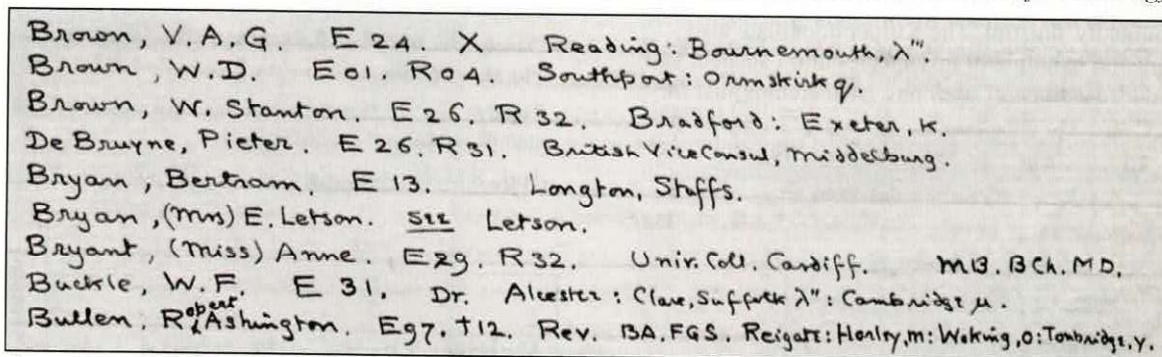 Brown, V.A.G. E 24. X Reading: Bournemouth λ"
Brown, W.D. E 01. R 04. Southport: Ormskirk q.
Brown, W. Stanton. E 26. R 32. Bradford: Exeter, K.
De Bruyne, Pieter. E 26. R 31. British Vice Consul, Middelburg.
Bryan, Bertram. E 13. Longton, Staffs.
Bryan, (Mrs) E. Letson. See Letson.
Bryant, (Miss) Anne. E 29. R 32. Univ. Coll. Cardiff. MB. BCh. MD.
Buckle, W.F. E 31. Dr. Alcester: Clare, Suffolk λ": Cambridge μ.
Bullen, Robert Ashington. E 97. †12. Rev. BA. FGS. Reigate: Henley, m: Woking, o: Tonbridge, y.